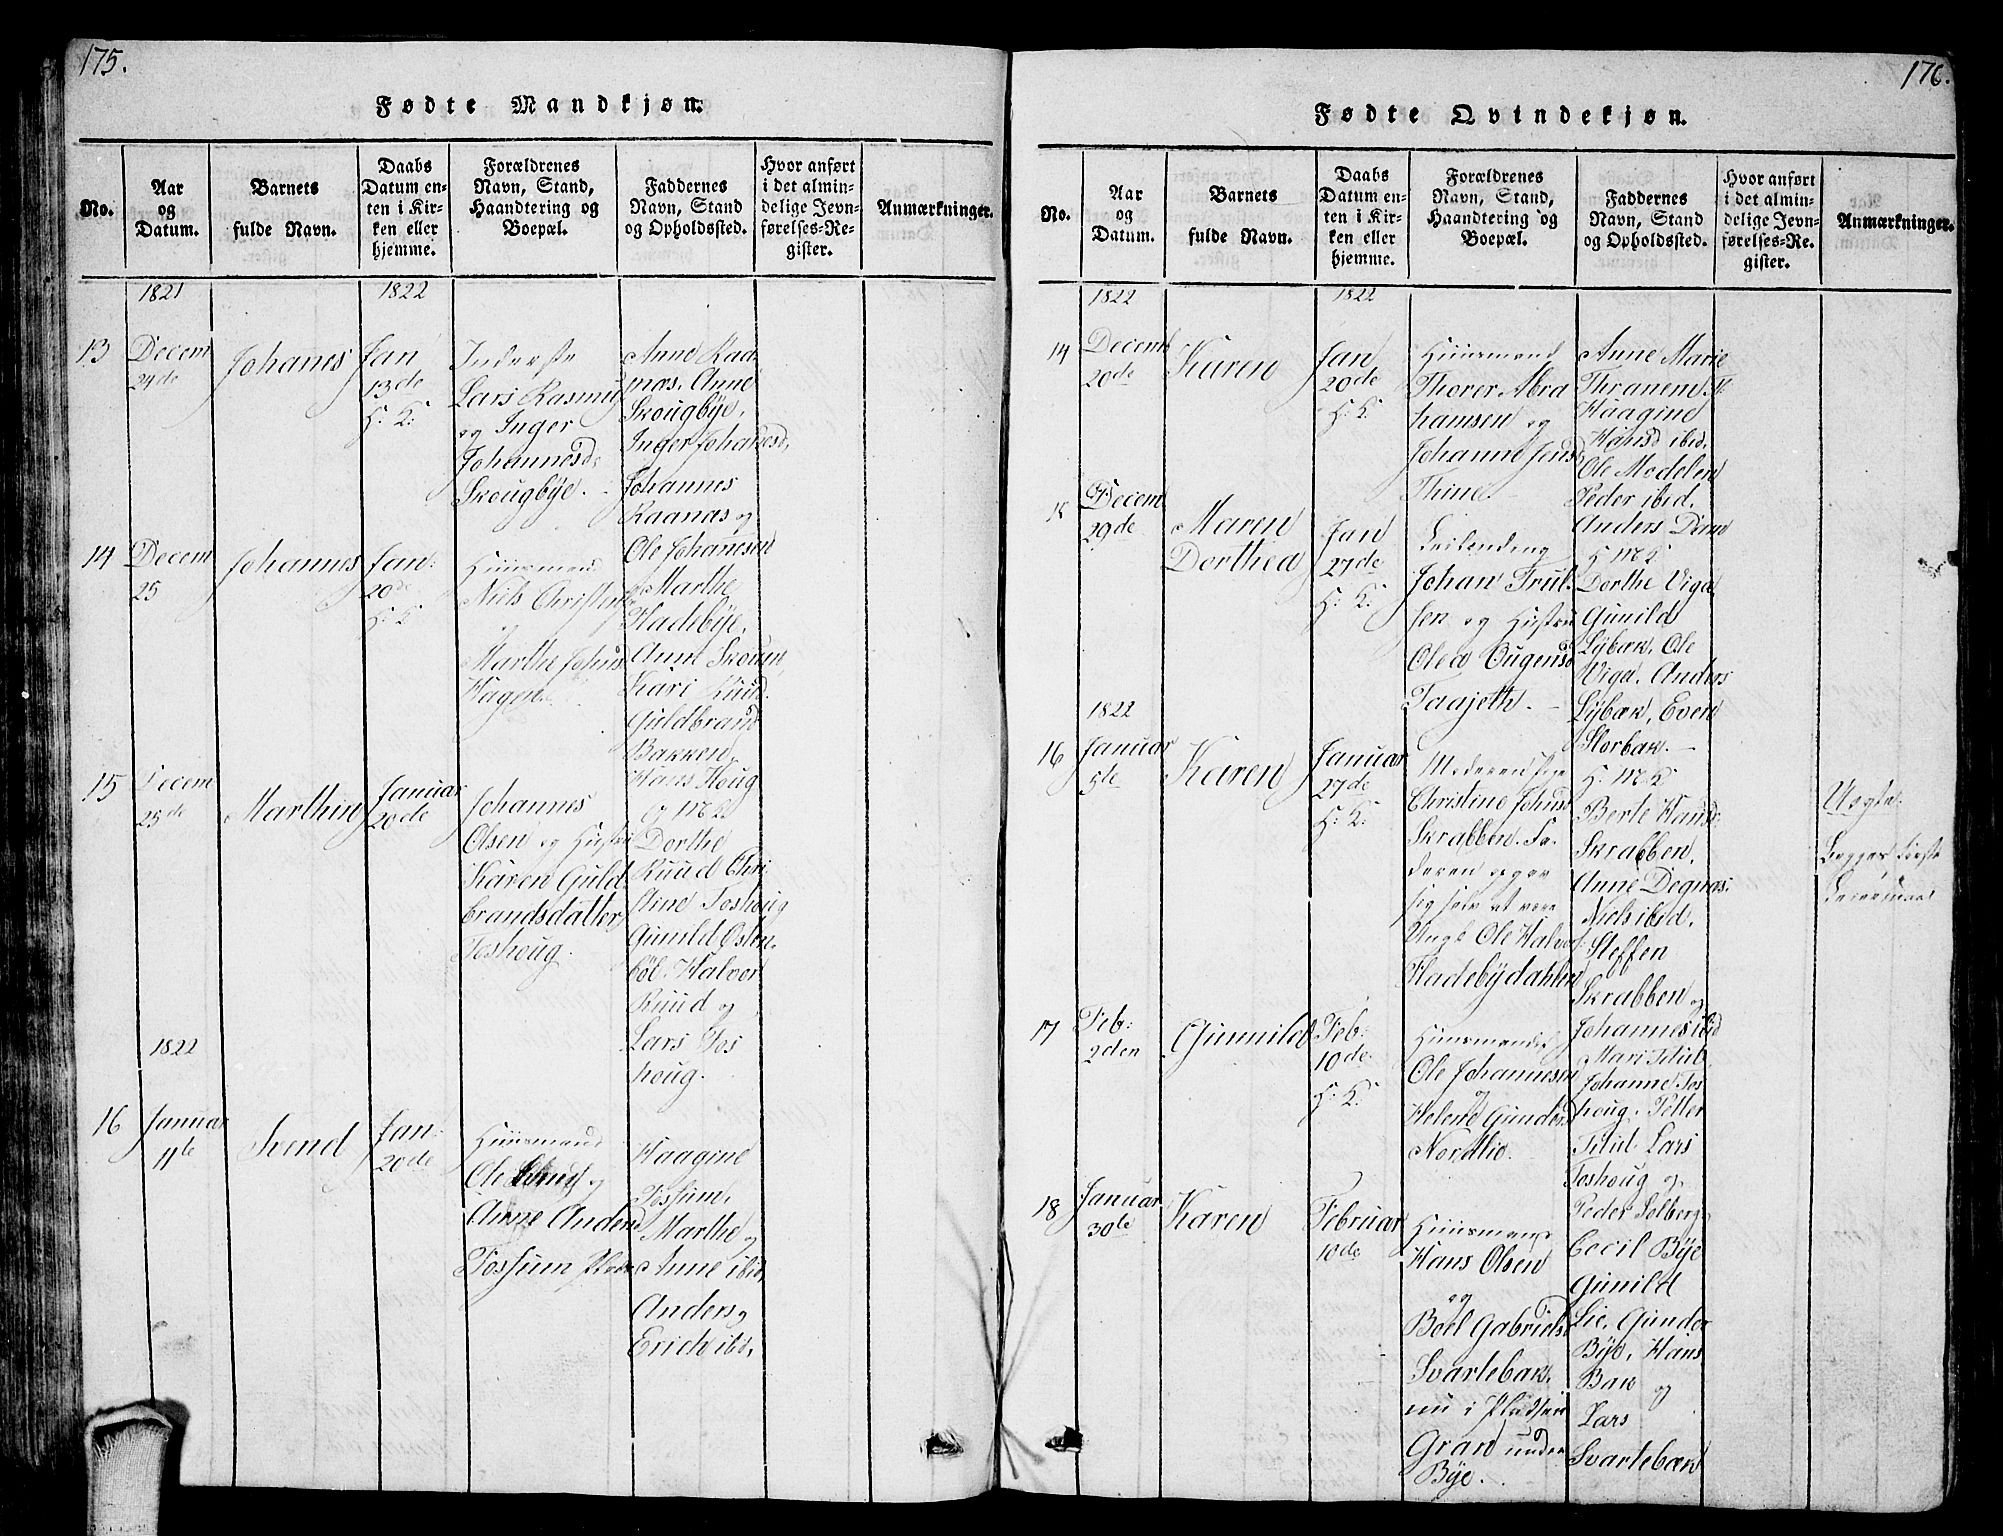 175.
Fødte Mandkjøn.
No.
Aar
og
Datum.
Barnets
fulde Navn.
Daabs
Datum en-
ten i Kir-
ken eller
hjemme.
Forældrenes
Navn, Stand,
Haandtering og
Boepæl.
Faddernes
Navn, Stand
og Opholdssted.
Hvor anført
i det almin-
delige Jevn-
førelses-Re-
gister.
Anmærkninger.
1821
1822
13
Decem
24de
Johanes
Jan
13de
H: K:
Inderste
Lars Rasmus
og Inger
Johannesd
Skougbye.
Anne Raa
nas. Anne
Skougbye,
Inger Johanesd,
Johannes
Raanas og
Ole Johanesen
14
Decem
25
Johannes
Jan:
20de
H: K
Huusmand
Niels Christen
og
Marthe Johns
Hagen.
Marthe
Fladebye,
Anne Skouun,
Kari Ruud.
Guldbrand
Bakken,
Hans Houg
15
Decem
25de
Marthin
Januar
20de
Johannes
Olsen og Hustru
Karen Guld
brandsdatter
Toshoug.
og M K
Dorthe
Ruud Chri
stine Toshoug
Gunild Østen
böl. Halvor
Ruud og
Lars Tos
houg.
1822
16
Januar
11te
Svend
Jan:
20de
Huusmand
Ole
og
Anne Anders
Fossum
Haagine
Fossum,
Marthe og
Anne ibid,
Anders og
Erich ibd,
176.
Fødte Qvindekjøn.
No.
Aar
og
Datum.
Barnets
fulde Navn.
Daabs
Datum en-
ten i Kir-
ken eller
hjemme.
Forældrenes
Navn, Stand,
Haandtering og
Boepæl.
Faddernes
Navn, Stand
og Opholdssted.
Hvor anført
i det almin-
delige Jevn-
førelses-Re-
gister.
Anmærkninger.
1822
1822
14
Decemb
20de
Karen
Jan
20de
H: K:
Huusmand
Thorer Abra
hamsen og
Johanne Jensd
Thine.
Anne Marie
Thranem
Haagine
Hansd ibid,
Ole Modelen
Peder ibid.
Anders Dam
15
Decem
29de
Maren
Dorthea
Jan
27de
H: K:
Leilending
Johan Trul
sen og Hustru
Olea Ougensd
Taajeth.
H M K
Dorthe Viga
Gunild
Lybæk, Ole
Viga. Anders
Lybæk, Even
Storbæk.
1822
16
Januar
5te
Karen
Januar
27de
H: K:
Moderen Pige
Christine Johns
Skrabben. Fa
deren opgav
sig selv at være
Ungk Ole Halvor
Fladebydahlen
H: M K
Berte Hansd
Skrabben,
Anne Degnas
Niels ibid.
Steffen
Skrabben og
Johannes ibid
Uægte
Begges første
Leiermaal
17
Feb:
2den
Gunnild
Feb:
10de
H: K:
Huusmanden
Ole Johannesen
og
Helene Gunders
Nordlie.
Mari Titul
Johanne Tos
houg. Petter
Titul. Lars
Toshoug og
Peder Solberg
18
Januar
30te
Karen
Februar
10de
Huusmand
Hans Olsen
og
Boel Gabriels
Svartebæk,
nu i Pladsen
Gran under
Bye.
Cecil Bye
Gunild
Lie, Gunder
Bye, Hans
Bak og
Lars
Svartebæk